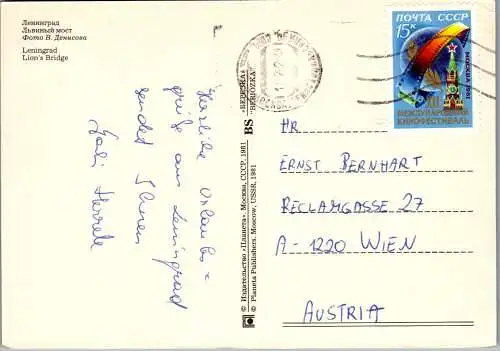 Ленинград
Львиный мост
Фото В. Денисова
Leningrad
Lion's Bridge
Herzliche Urlaubs=
grüße aus Leningrad
sendet Ihnen
Gabi
«БЕРЕЗКА»
"BERIOZKA"
BS
© Издательство «Планета». Москва, СССР, 1981
© Planeta Publishers. Moscow, USSR, 1981
ПОЧТА СССР
15к
МОСКВА 1981
XII
МЕЖДУНАРОДНЫЙ
КИНОФЕСТИВАЛЬ
HR
ERNST BERNHART
RECLAMGASSE 27
A-1220 WIEN
AUSTRIA